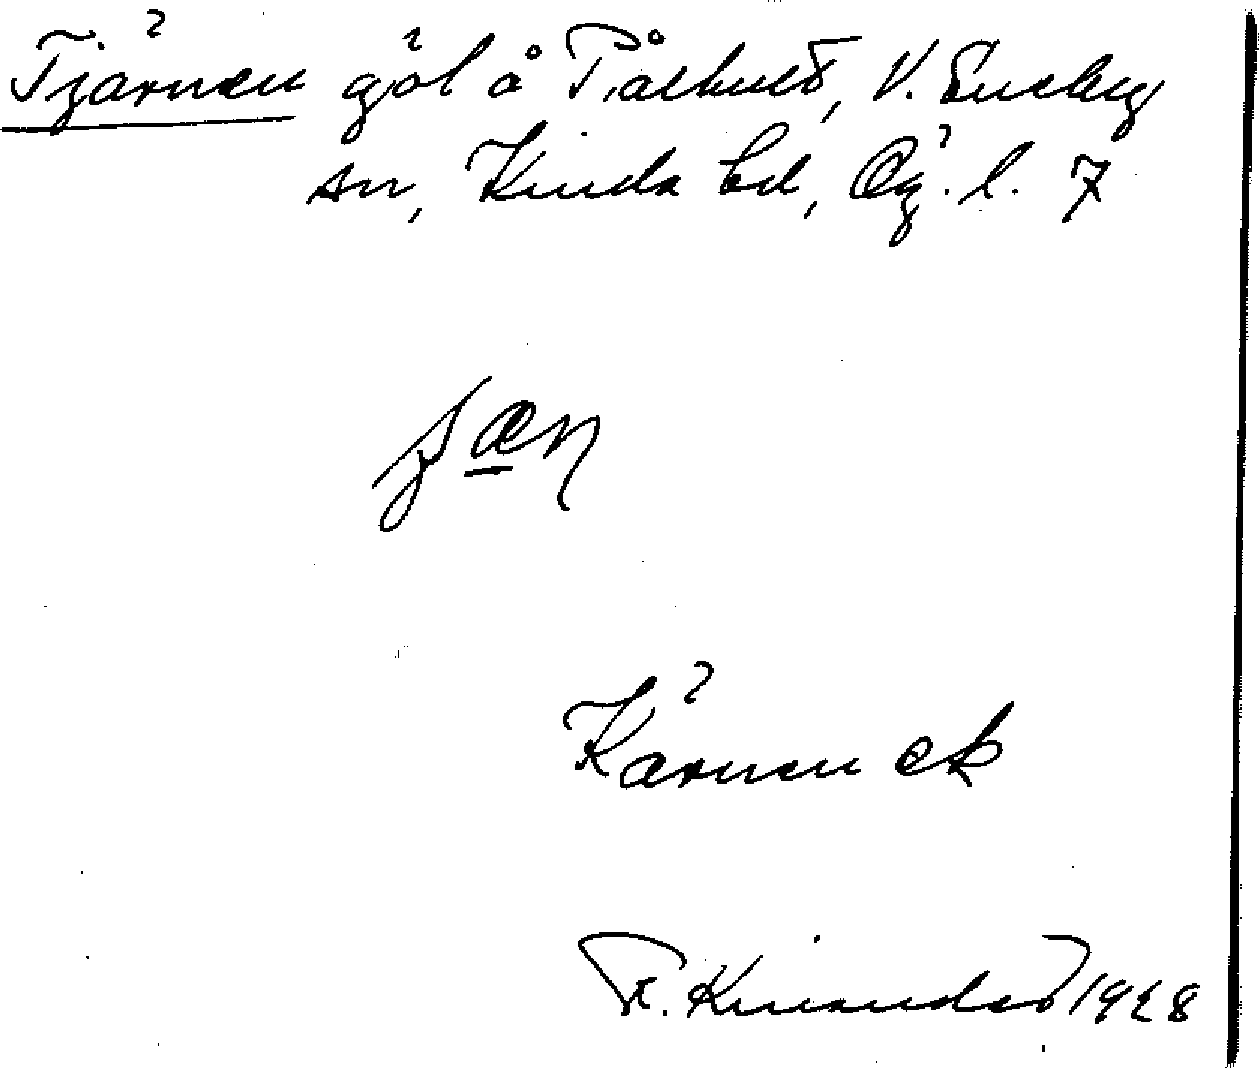 Tjärnen göl å Pålhult, V. Eneby
sn, Kinda hd, Ög. l. 7
Kärnen ek
R. Kinander 1928